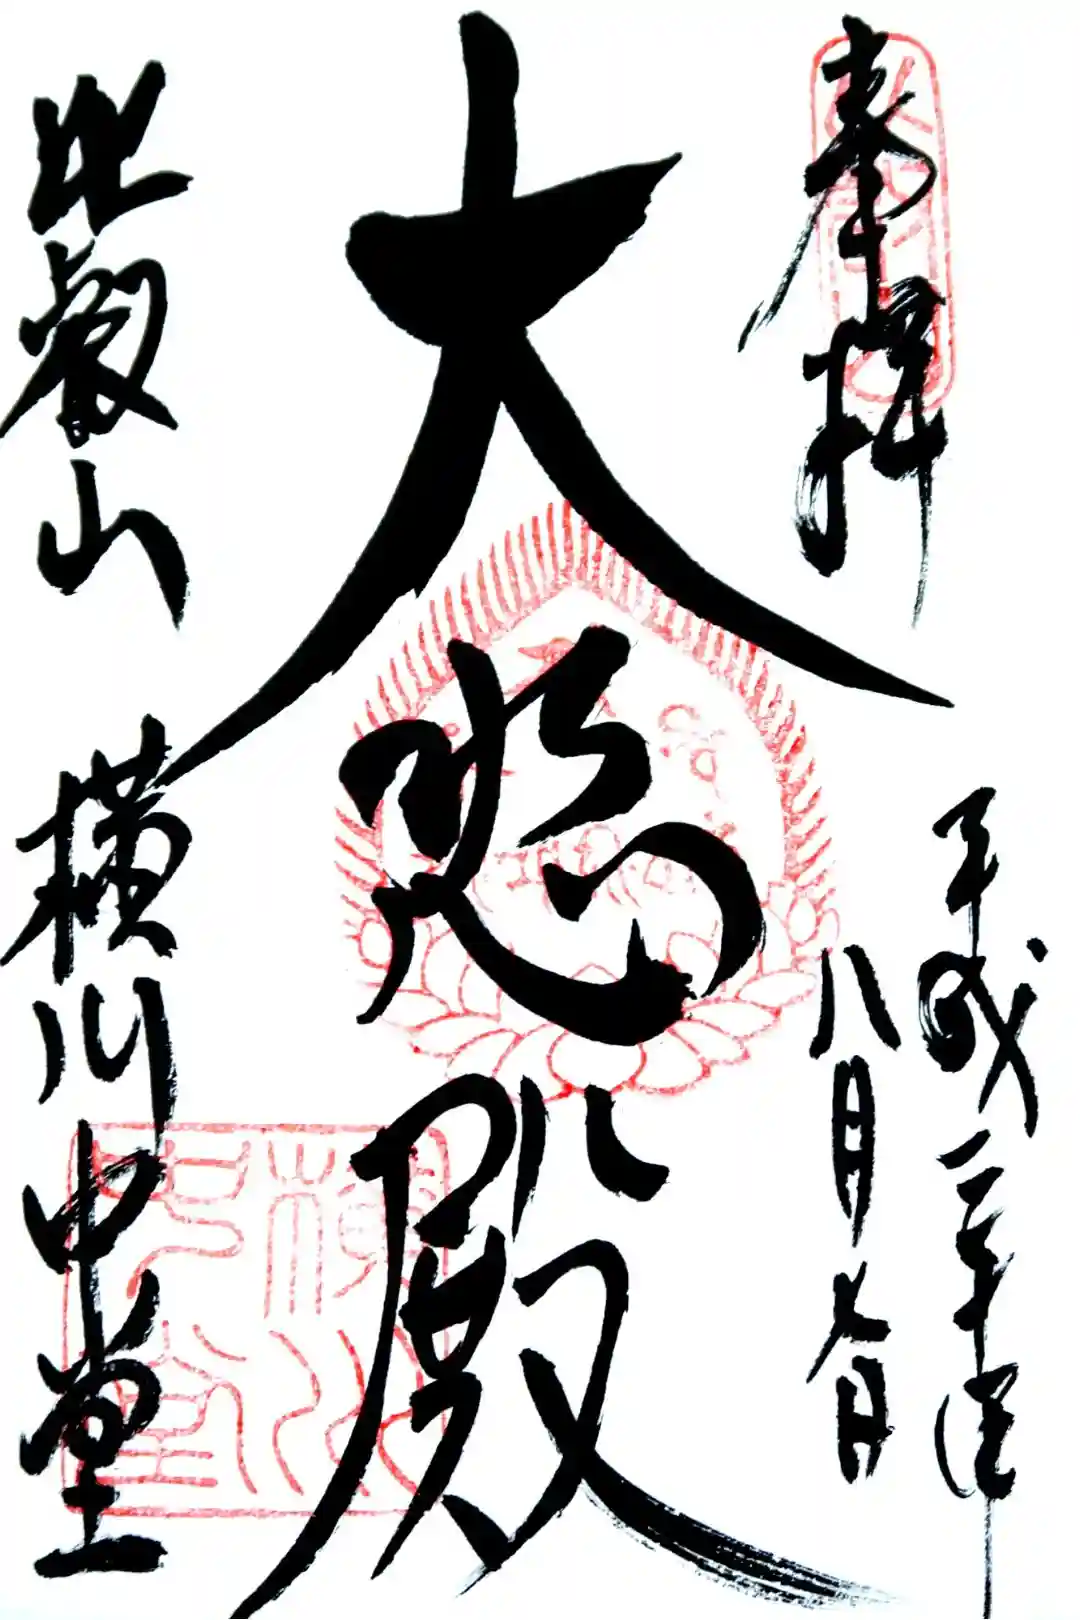 奉拝
平成
八月七日
大悲殿
比叡山 横川中堂